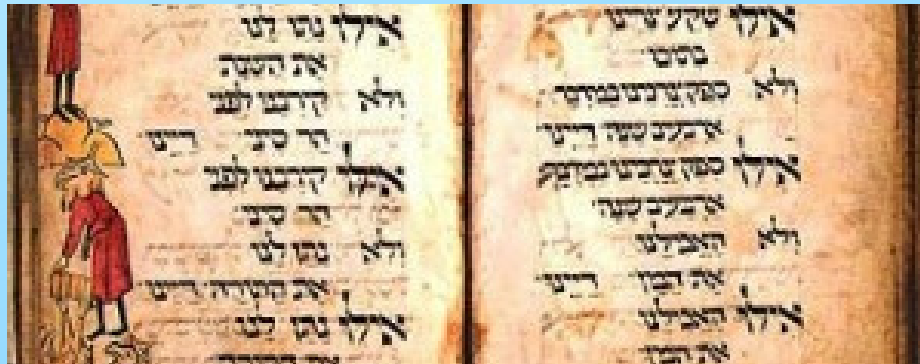 אילו שקע צרינו
בתוכו
ולא ספק צרכינו במדבר
ארבעים שנה דיינו
אילו ספק צרכינו במדבר
ארבעים שנה
ולא האכילנו
את המן דיינו
אילו האכילנו
את המן
אילו נתן לנו
את השבת
ולא קירבנו לפני
הר סיני דיינו
אילו קירבנו לפני
הר סיני
ולא נתן לנו
את התורה דיינו
אילו נתן לנו
את התורה